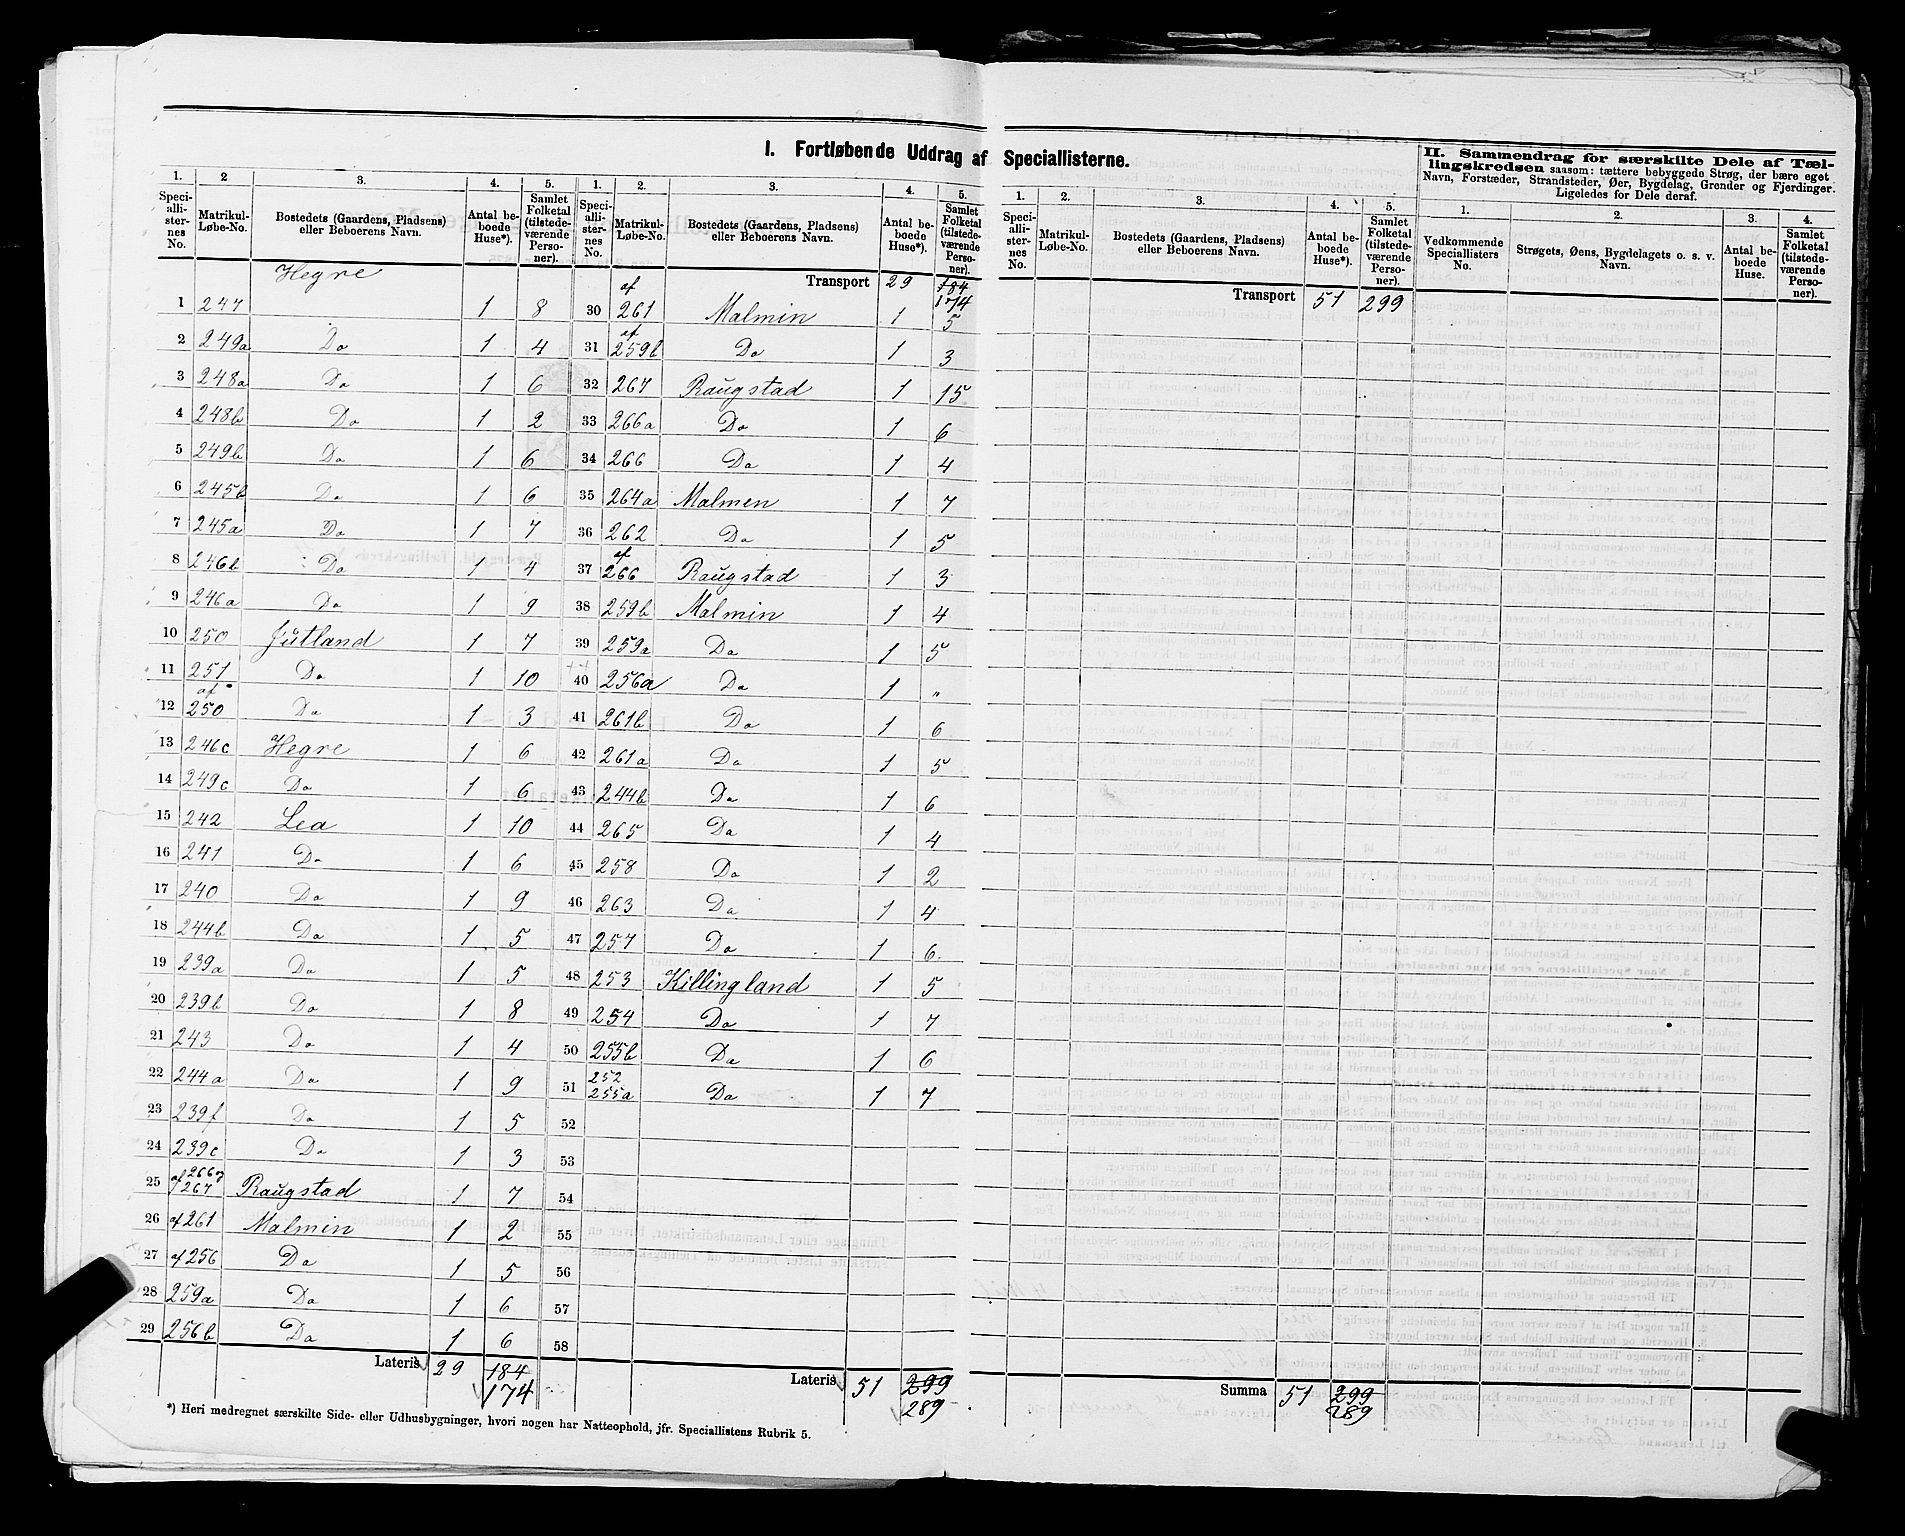 I. Fortløbende Uddrag af Speciallisterne.
II. Sammendrag for særskilte Dele af Tæl-
lingskredsen saasom: tættere bebyggede Strøg, der bære eget
Navn, Forstæder, Strandsteder, Øer, Bygdelag, Grender og Fjerdinger.
Ligeledes for Dele deraf.
1. 2 3. 4. 5.
Speci-alli-ster-nes No. Matrikul-Løbe-No. Bostedets (Gaardens, Pladsens) eller Beboerens Navn. Antal be-boede Huse*). Samlet Folketal (tilstede-værende Perso-ner).
Hegre
1 247 1 8
2 249a Do 1 4
3 248a Do 1 6
4 248b Do 1 2
5 249b Do 1 6
6 245b Do 1 6
7 245a Do 1 7
8 246b Do 1 4
9 246a Do 1 9
10 250 Jutland 1 7
11 251 Do 1 10
12 af 250 Do 1 3
13 246c Hegre 1 6
14 249c Do 1 6
15 242 Lea 1 10
16 241 Do 1 6
17 240 Do 1 9
18 244b Do 1 5
19 239a Do 1 5
20 239b Do 1 8
21 243 Do 1 4
22 244a Do 1 9
23 239f Do 1 5
24 239c Do 1 3
25 af 266 og 267 Raugstad 1 7
26 af 261 Malmin 1 2
27 af 256 Do 1 5
28 259a Do 1 6
29 256b Do 1 6
Lateris 29 184
174
1. 2. 3. 4. 5.
Speci-alli-ster-nes No. Matrikul-Løbe-No. Bostedets (Gaardens, Pladsens) eller Beboerens Navn. Antal be-boede Huse*). Samlet Folketal (tilstede-værende Perso-ner).
Transport 29 184
174
30 af 261 Malmin 1 5
31 af 259b Do 1 3
32 267 Raugstad 1 15
33 266a Do 1 6
34 266 Do 1 4
35 264a Malmen 1 7
36 262 Do 1 5
37 af 266 Raugstad 1 3
38 259b Malmin 1 4
39 259a Do 1 5
40 256a Do 1 "
41 261b Do 1 6
42 261a Do 1 5
43 244b Do 1 6
44 265 Do 1 4
45 258 Do 1 2
46 263 Do 1 4
47 257 Do 1 6.
48 253 Killingland 1 5
49 254 Do 1 7
50 255b Do 1 6
51 252 255a Do 1 7
52
53
54
55
56
57
58
Lateris 51 299
289
*) Heri medregnet særskilte Side- eller Udhusbygninger, hvori nogen har Natteophold, jfr. Speciallistens Rubrik 5.
1. 2. 3. 4. 5.
Speci-alli-ster-nes No. Matrikul-Løbe-No. Bostedets (Gaardens, Pladsens) eller Beboerens Navn. Antal be-boede Huse*). Samlet Folketal (tilstede-værende Perso-ner).
Transport 51 299
Summa 51 299
289
1. 2. 3. 4.
Vedkommende Speciallisters No. Strøgets, Øens, Bygdelagets o. s. v. Navn. Antal be-boede Huse. Samlet Folketal (tilstede-værende Perso-ner).